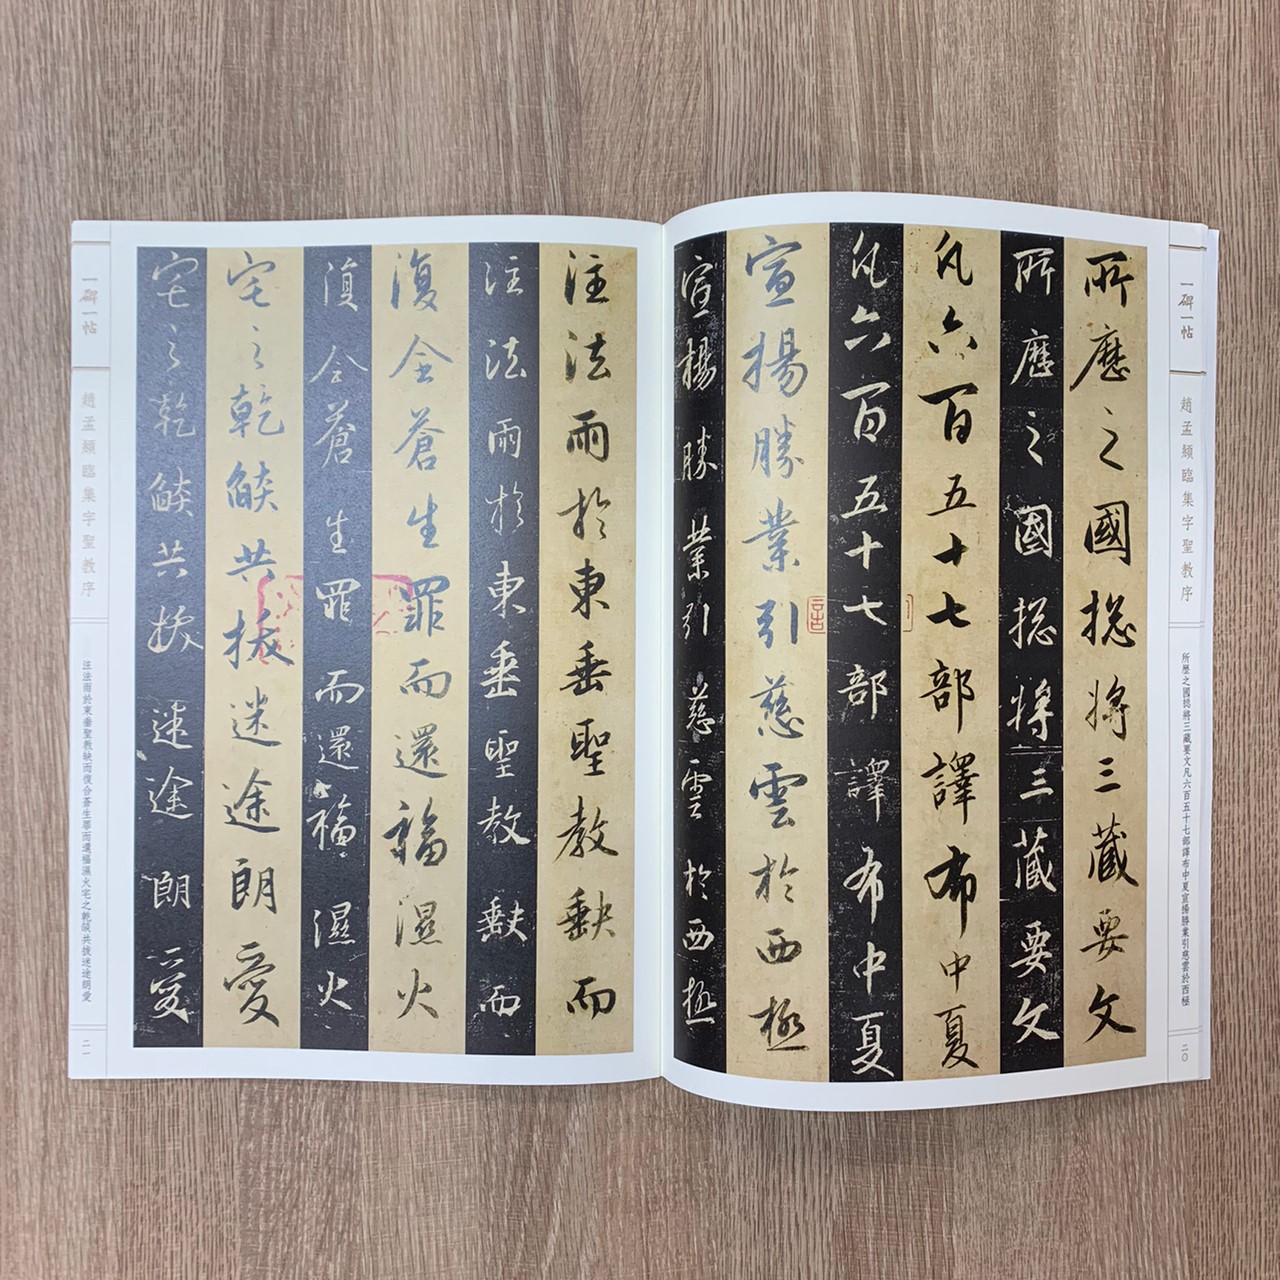 一碑一帖
趙孟頫臨集字聖教序
所歷之國摠將三藏要文凡六百五十七部譯布中夏宣揚勝業引慈雲於西極
二〇
所歷之國摠將三藏要文
所歷之國摠將三藏要文
凡六百五十七部譯布中夏
凡六百五十七部譯布中夏
宣揚勝業引慈雲於西極
宣揚勝業引慈雲於西極
注法雨於東垂聖教缺而
注法雨於東垂聖教缺而
復全蒼生罪而還福濕火
復全蒼生罪而還福濕火
宅之乾燄共拔迷途朗愛
宅之乾燄共拔迷途朗愛
一碑一帖
趙孟頫臨集字聖教序
注法雨於東垂聖教缺而復全蒼生罪而還福濕火宅之乾燄共拔迷途朗愛
二一